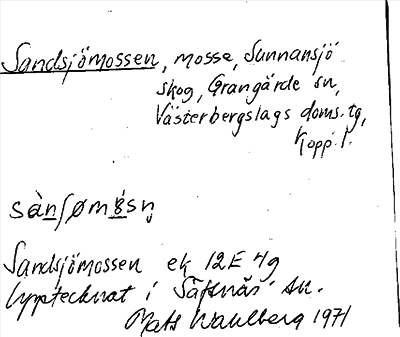 Sandsjömossen, mosse, Sunnansjö
skog, Grangärde sn,
Västerbergslags doms.tg,
Kopp. l.
sànʃøm
Sandsjömossen ek 12E 4g
Upptecknat i Säfsnäs sn.
Mats Wahlberg 1971